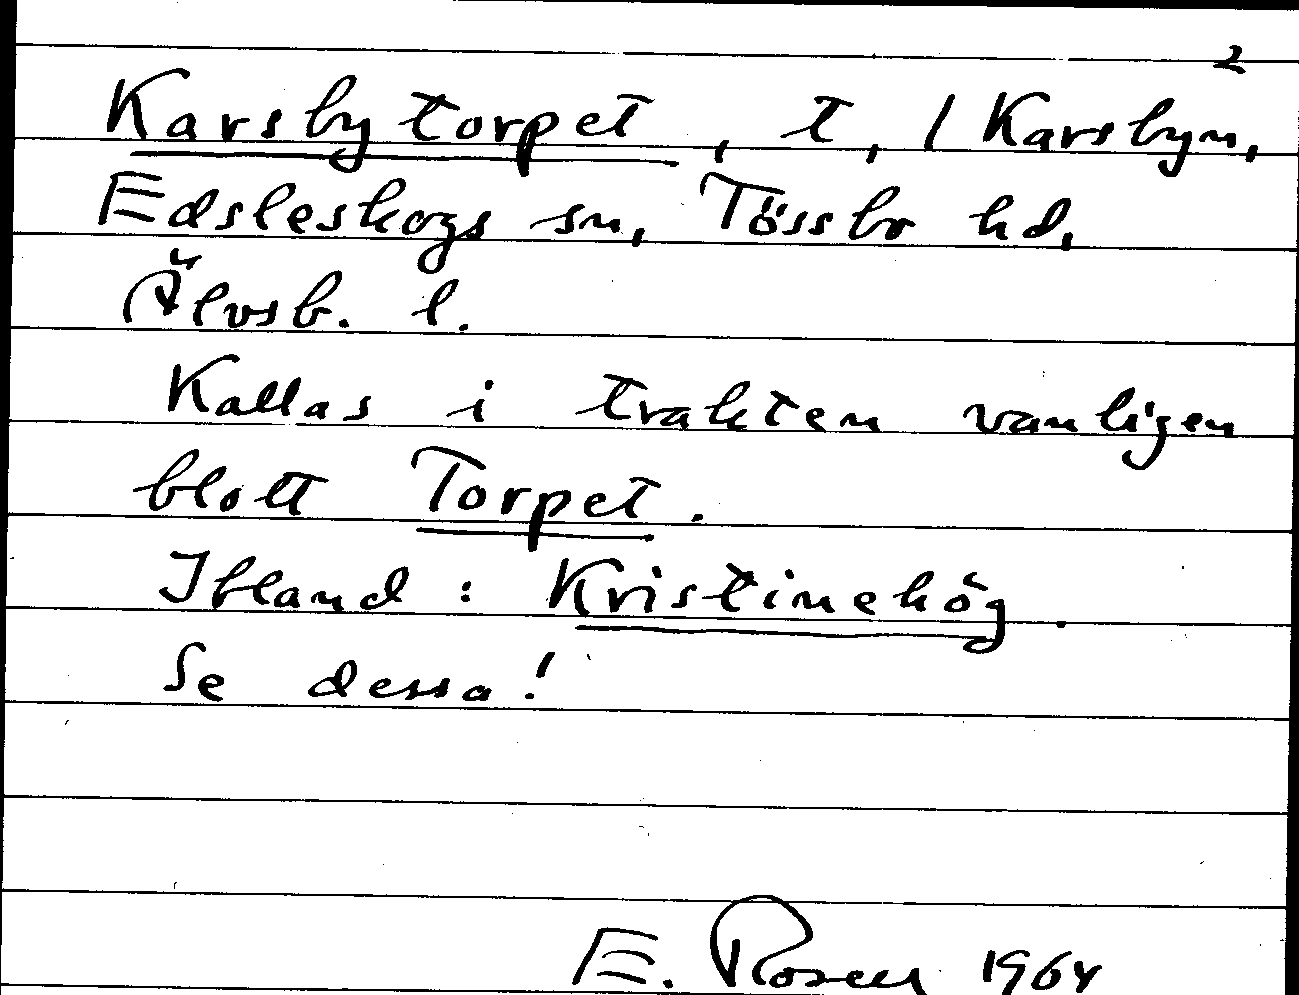 2
Karsbytorpet, t, / Karsbyn,
Edsleskogs sn, Tössbo hd,
Älvsb. l.
Kallas i trakten vanligen
blott Torpet.
Ibland: Kristinehög.
Se dessa!
E. Rosen 1964